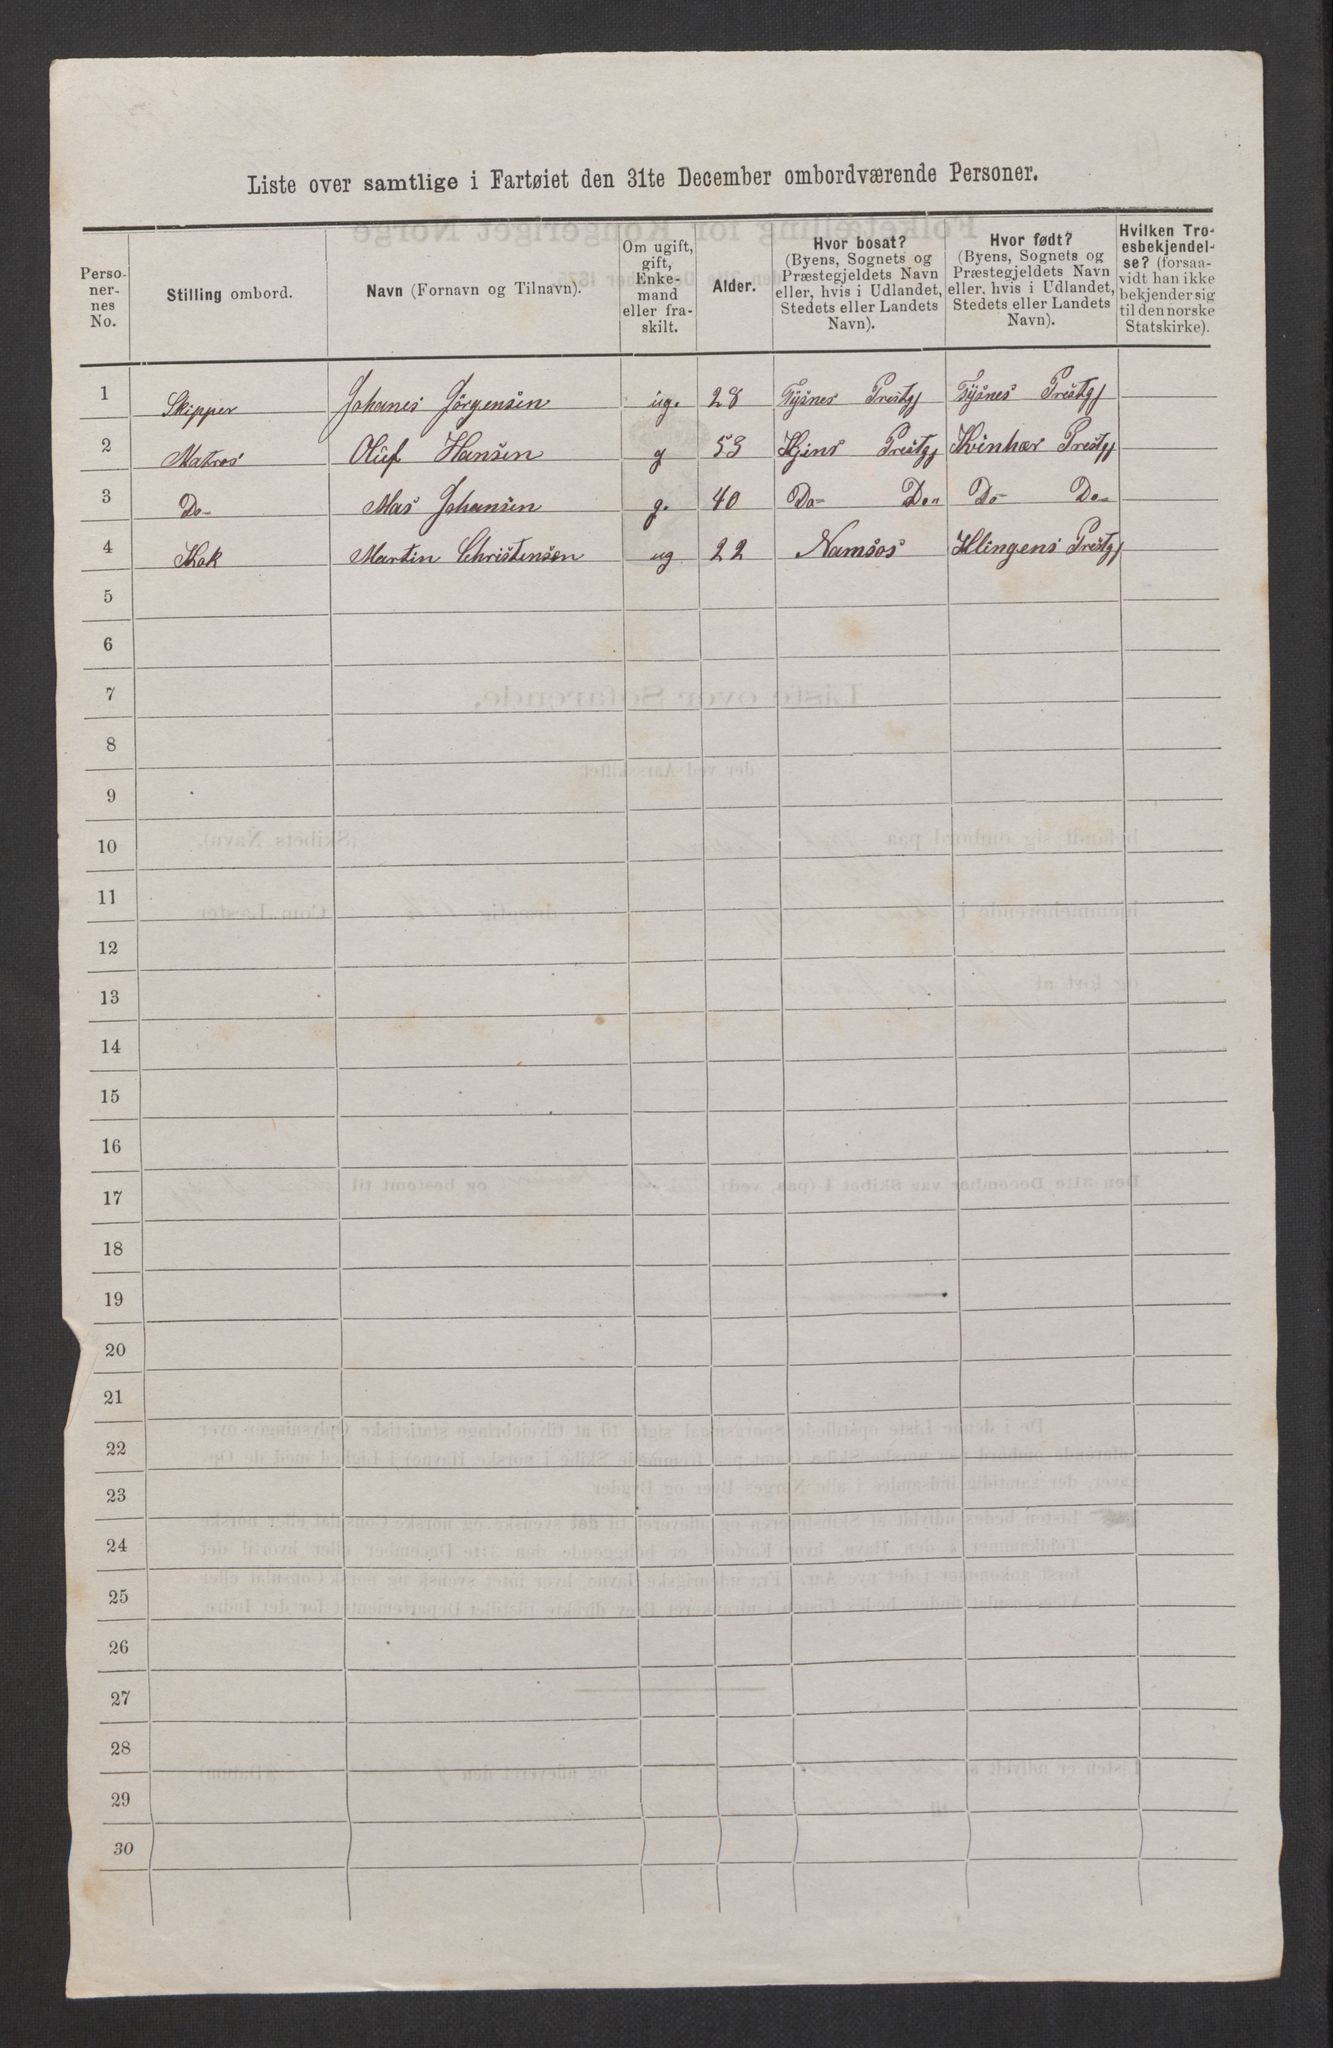 Liste over samtlige i Fartøiet den 31te December ombordværende Personer.
Perso-
ner-
nes
No.
Stilling ombord.
Navn (Fornavn og Tilnavn).
Om ugift,
gift,
Enke-
mand
eller fra-
skilt.
Alder.
Hvor bosat?
(Byens, Sognets og
Præstegjeldets Navn
eller, hvis i Udlandet,
Stedets eller Landets
Navn).
Hvor født?
(Byens, Sognets og
Præstegjeldets Navn
eller, hvis i Udlandet,
Stedets eller Landets
Navn).
Hvilken Tro-
esbekjendel-
se? (forsaa-
vidt han ikke
bekjender sig
til den norske
Statskirke).
1 Skipper Johanes Jörgensen ug. 28 Tysnes Prestgj Tysnes Prestgj
2 Matros Oluf Hansen g 53 Prestgj Kvinhær Prestgj
3 Do- Mas Johansen g. 40 Do- Do- Do- Do-
4 Kok Martin Christensen ug 22 Namsos Klingens Prestgj
5
6
7
8
9
10
11
12
13
14
15
16
17
18
19
20
21
22
23
24
25
26
27
28
29
30